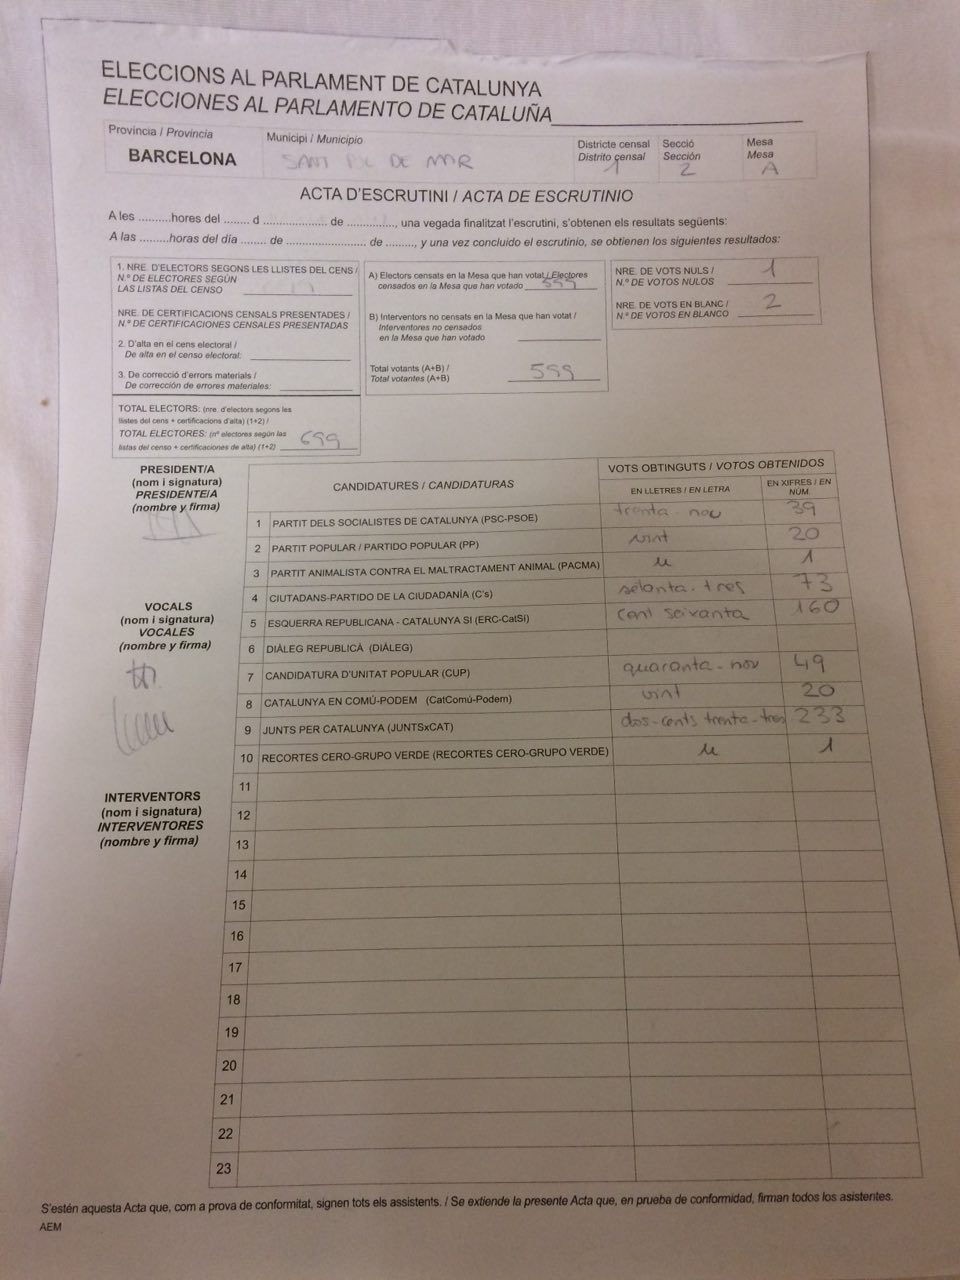 ELECCIONS AL PARLAMENT DE CATALUNYA
ELECCIONES AL PARLAMENTO DE CATALUÑA
Provincia / Provincia
BARCELONA
Municipi / Municipio
SANT POL DE MAR
Districte censal
Distrito censal
1
Secció
Sección
2
Mesa
Mesa
A
ACTA D'ESCRUTINI / ACTA DE ESCRUTINIO
A les ..........hores del ........ d .................... de ..............., una vegada finalitzat l'escrutini, s'obtenen els resultats següents:
A las .........horas del día ........ de ........................ de ........., y una vez concluido el escrutinio, se obtienen los siguientes resultados:
1. NRE. D'ELECTORS SEGONS LES LLISTES DEL CENS /
N.º DE ELECTORES SEGÚN
LAS LISTAS DEL CENSO
NRE. DE CERTIFICACIONS CENSALS PRESENTADES /
N.º DE CERTIFICACIONES CENSALES PRESENTADAS
2. D'alta en el cens electoral /
De alta en el censo electoral:
3. De correcció d'errors materials /
De corrección de errores materiales:
TOTAL ELECTORS: (nre. d'electors segons les
llistes del cens + certificacions d'alta) (1+2) /
TOTAL ELECTORES: (nº electores según las
listas del censo + certificaciones de alta) (1+2) 699
A) Electors censats en la Mesa que han votat / Electores
censados en la Mesa que han votado 599
B) Interventors no censats en la Mesa que han votat /
Interventores no censados
en la Mesa que han votado
Total votants (A+B) /
Total votantes (A+B) 599
NRE. DE VOTS NULS /
N.º DE VOTOS NULOS 1
NRE. DE VOTS EN BLANC /
N.º DE VOTOS EN BLANCO 2
PRESIDENT/A
(nom i signatura)
PRESIDENTE/A
(nombre y firma)
VOCALS
(nom i signatura)
VOCALES
(nombre y firma)
INTERVENTORS
(nom i signatura)
INTERVENTORES
(nombre y firma)
CANDIDATURES / CANDIDATURAS
VOTS OBTINGUTS / VOTOS OBTENIDOS
EN LLETRES / EN LETRA
EN XIFRES / EN NÚM.
1 PARTIT DELS SOCIALISTES DE CATALUNYA (PSC-PSOE) trenta-nou 39
2 PARTIT POPULAR / PARTIDO POPULAR (PP) vint 20
3 PARTIT ANIMALISTA CONTRA EL MALTRACTAMENT ANIMAL (PACMA) u 1
4 CIUTADANS-PARTIDO DE LA CIUDADANÍA (C's) setanta-tres 73
5 ESQUERRA REPUBLICANA - CATALUNYA SI (ERC-CatSI) cent seixanta 160
6 DIÀLEG REPUBLICÀ (DIÀLEG)
7 CANDIDATURA D'UNITAT POPULAR (CUP) quaranta-nou 49
8 CATALUNYA EN COMÚ-PODEM (CatComú-Podem) vint 20
9 JUNTS PER CATALUNYA (JUNTSxCAT) dos-cents trenta-tres 233
10 RECORTES CERO-GRUPO VERDE (RECORTES CERO-GRUPO VERDE) u 1
11
12
13
14
15
16
17
18
19
20
21
22
23
S'estén aquesta Acta que, com a prova de conformitat, signen tots els assistents. / Se extiende la presente Acta que, en prueba de conformidad, firman todos los asistentes.
AEM